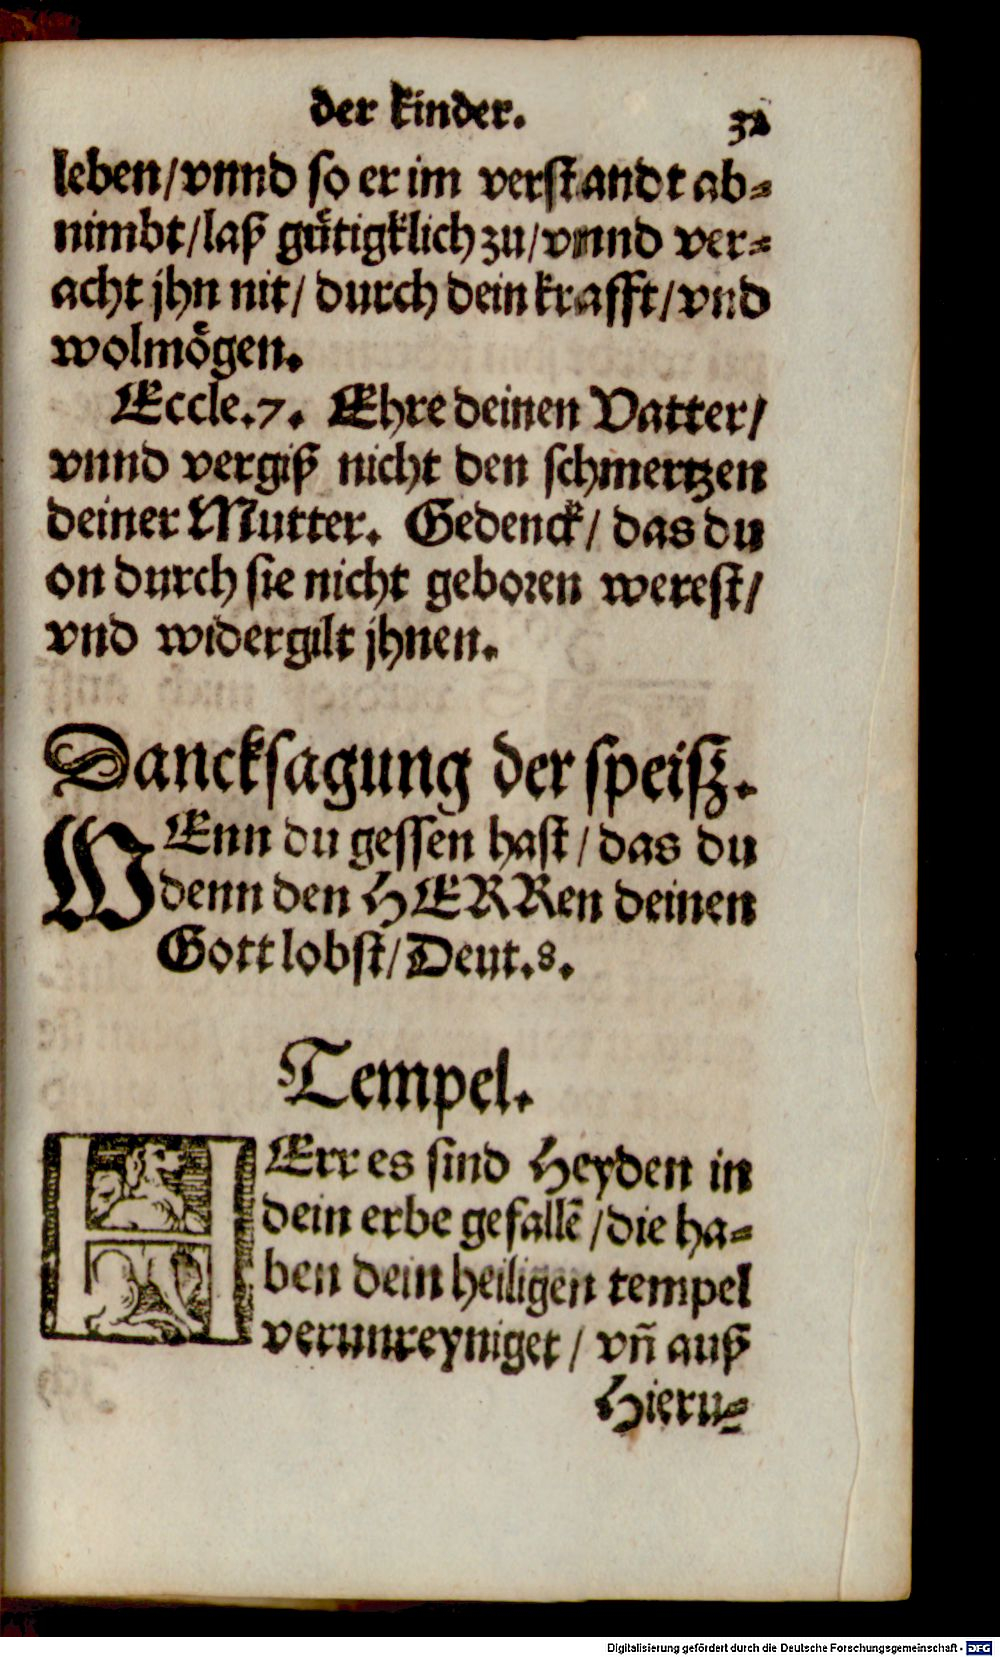 der kinder. 32
leben/vnnd so er im verstandt ab-
nimbt/laß gütigklich zu/vnnd ver-
acht jhn nit/ durch dein krafft/vnd
wolmögen.
Eccle.7. Ehre deinen Vatter/
vnnd vergiß nicht den schmertzen
deiner Mutter. Gedenck/ das du
on durch sie nicht geboren werest/
vnd widergilt jhnen.
Dancksagung der speisz.
WEnn du gessen hast/das du
denn den HERRen deinen
Gott lobst/Deut.8.
Tempel.
HErr es sind Heyden in
dein erbe gefallē/die ha-
ben dein heiligen tempel
verunreyniget/ vn̄ auß
Hieru-
Digitalisierung gefördert durch die Deutsche Forschungsgemeinschaft - DFG